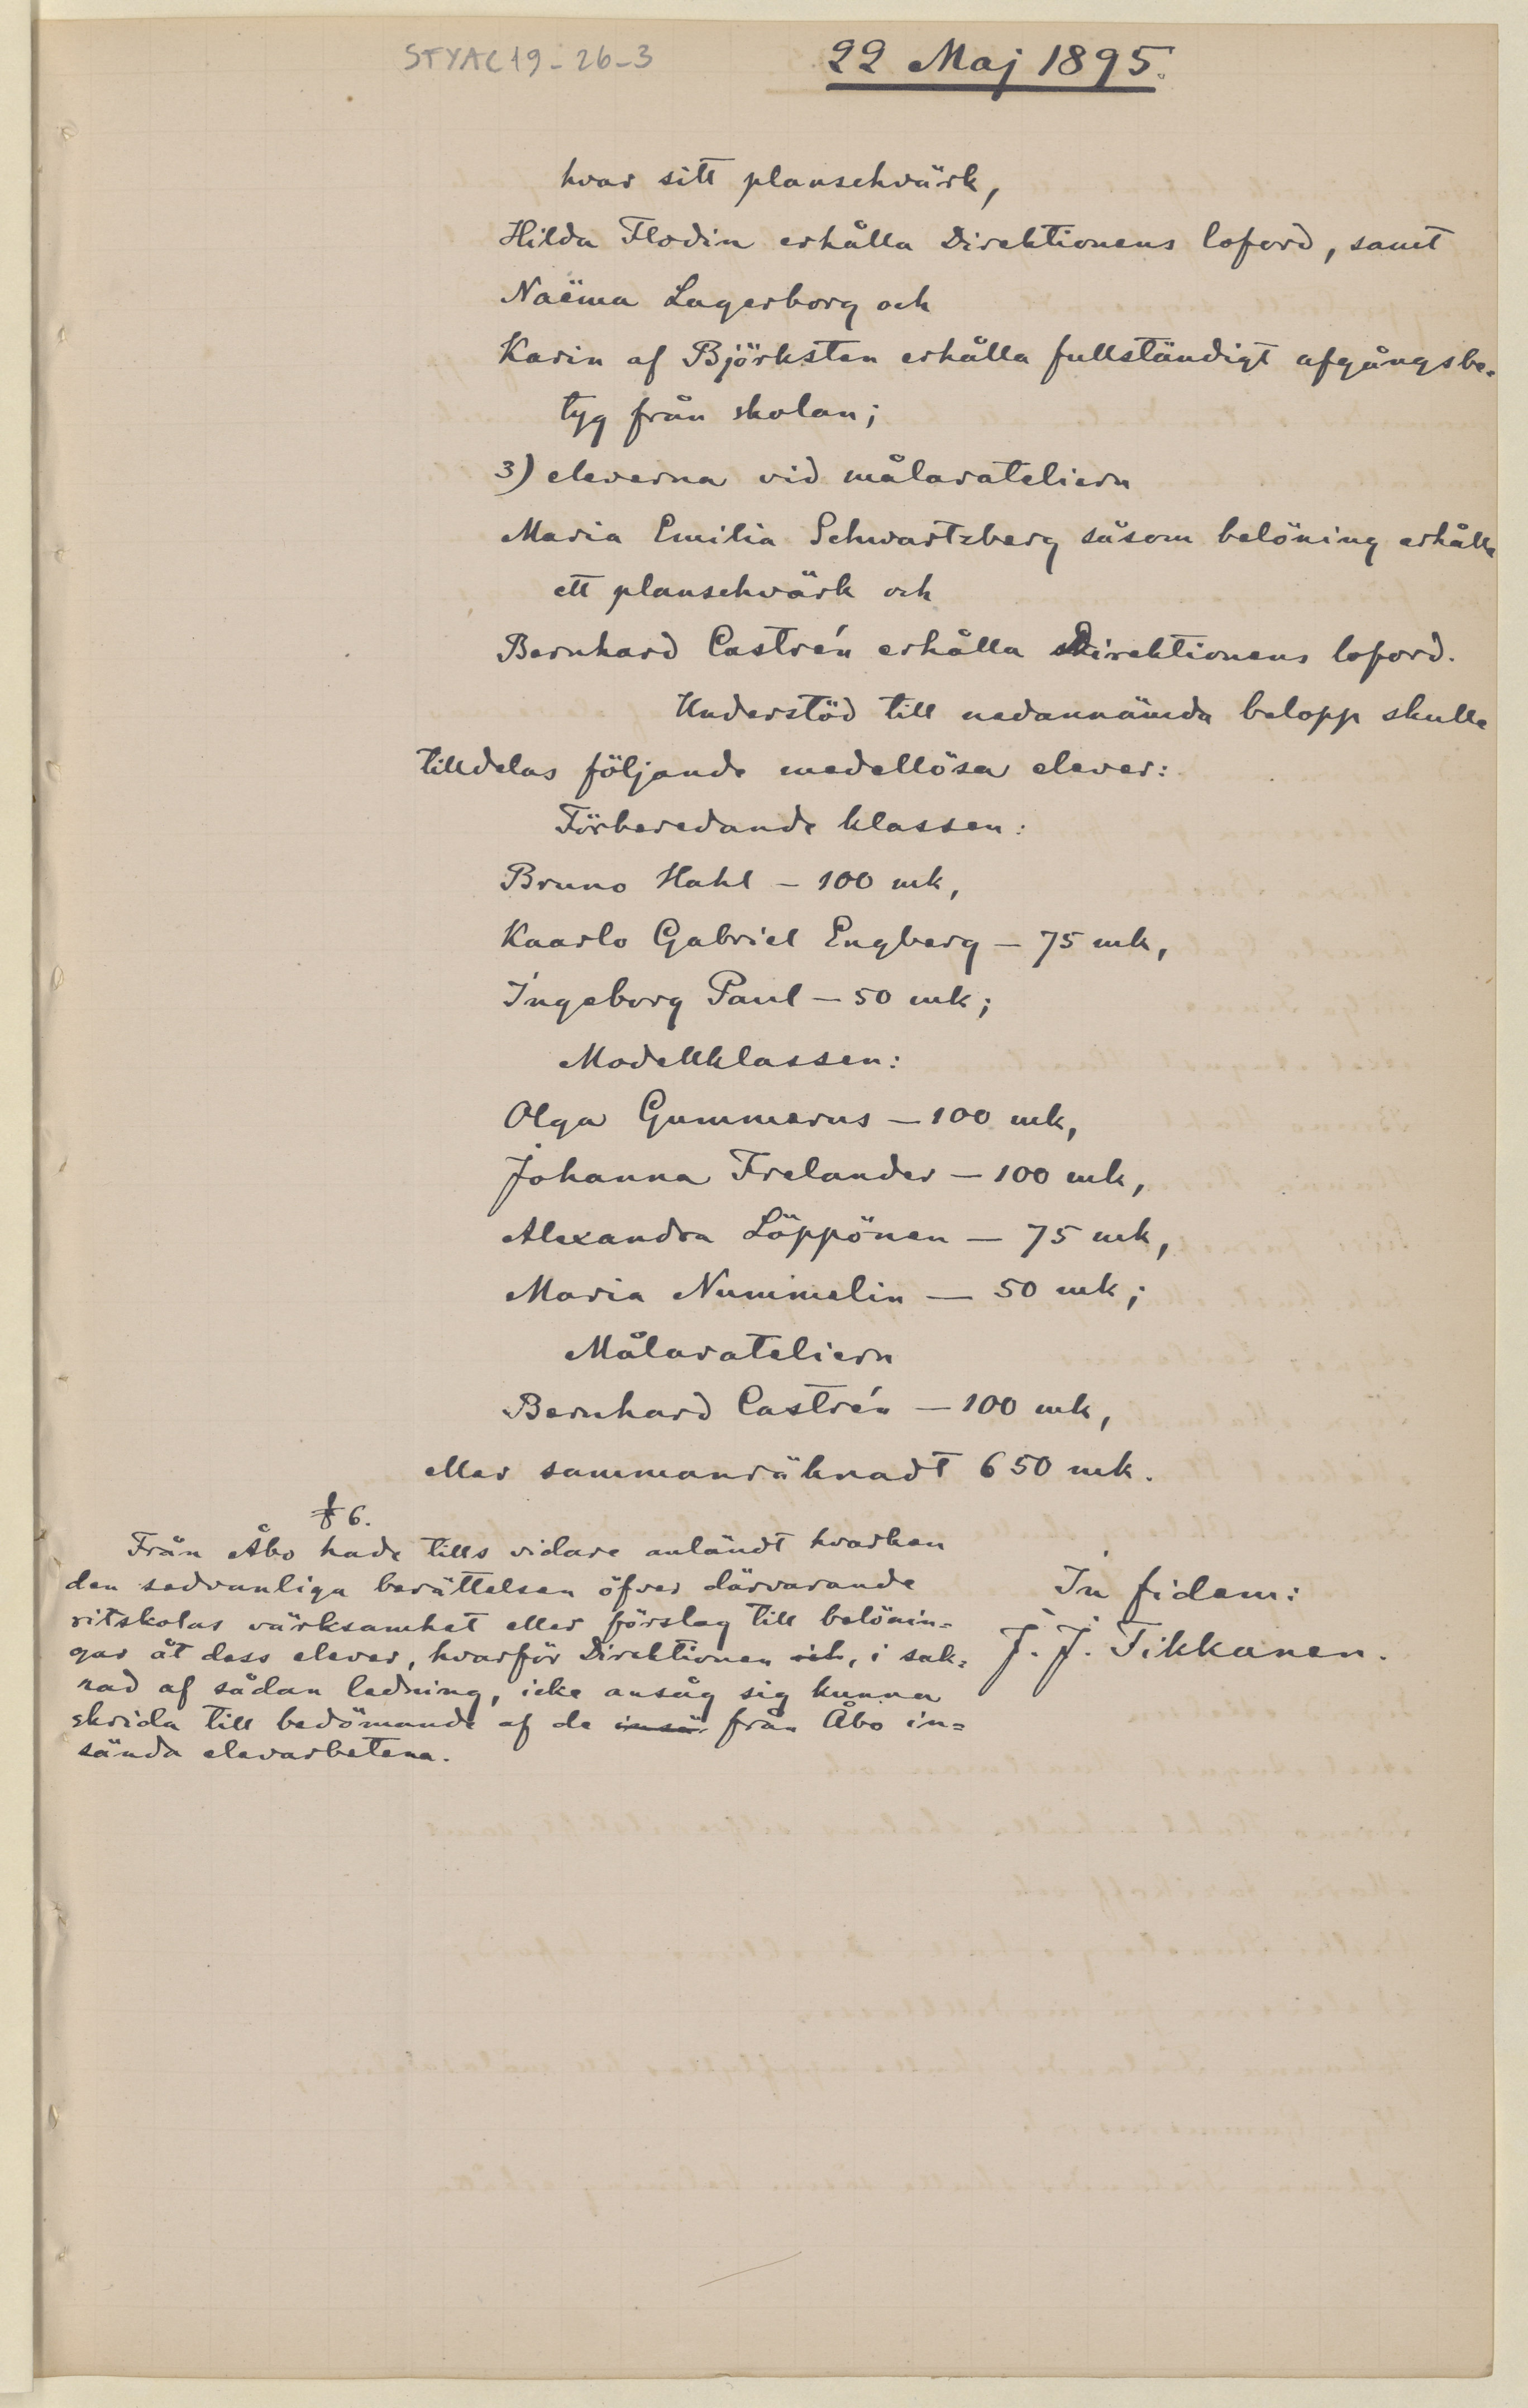 STYAC19-26-3
22 Maj 1895.
hvar sitt planschvärk,
Hilda Flodin erhålla Direktionens loford, samt
Naëma Lagerborg och
Karin af Björksten erhålla fullständigt afgångsbe-
tyg från skolan;
3) eleverna vid målarateliern
Maria Emilia Schwartzberg såsom belöning erhålla
ett planschvärk och
Bernhard Castrén erhålla Direktionens loford.
Understöd till nedannämda belopp skulle
tilldelas följande medellösa elever:
Förberedande klassen:
Bruno Hahl – 100 mk,
Kaarlo Gabriel Engberg – 75 mk,
Ingeborg Paul – 50 mk;
Modellklassen:
Olga Gummerus – 100 mk,
Johanna Frelander – 100 mk,
Alexandra Löppönen – 75 mk,
Maria Nummelin – 50 mk;
Målarateliern
Bernhard Castrén – 100 mk,
eller sammanräknadt 650 mk.
§ 6.
Från Åbo hade tills vidare anländt hvarken
den sedvanliga berättelsen öfver därvarande
ritskolas värksamhet eller förslag till belönin=
gar åt dess elever, hvarför Direktionen ich, i sak=
nad af sådan ledning, icke ansåg sig kunna
skrida till bedömande af de insä från Åbo in=
sända elevarbetena.
In fidem:
J. J. Tikkanen.